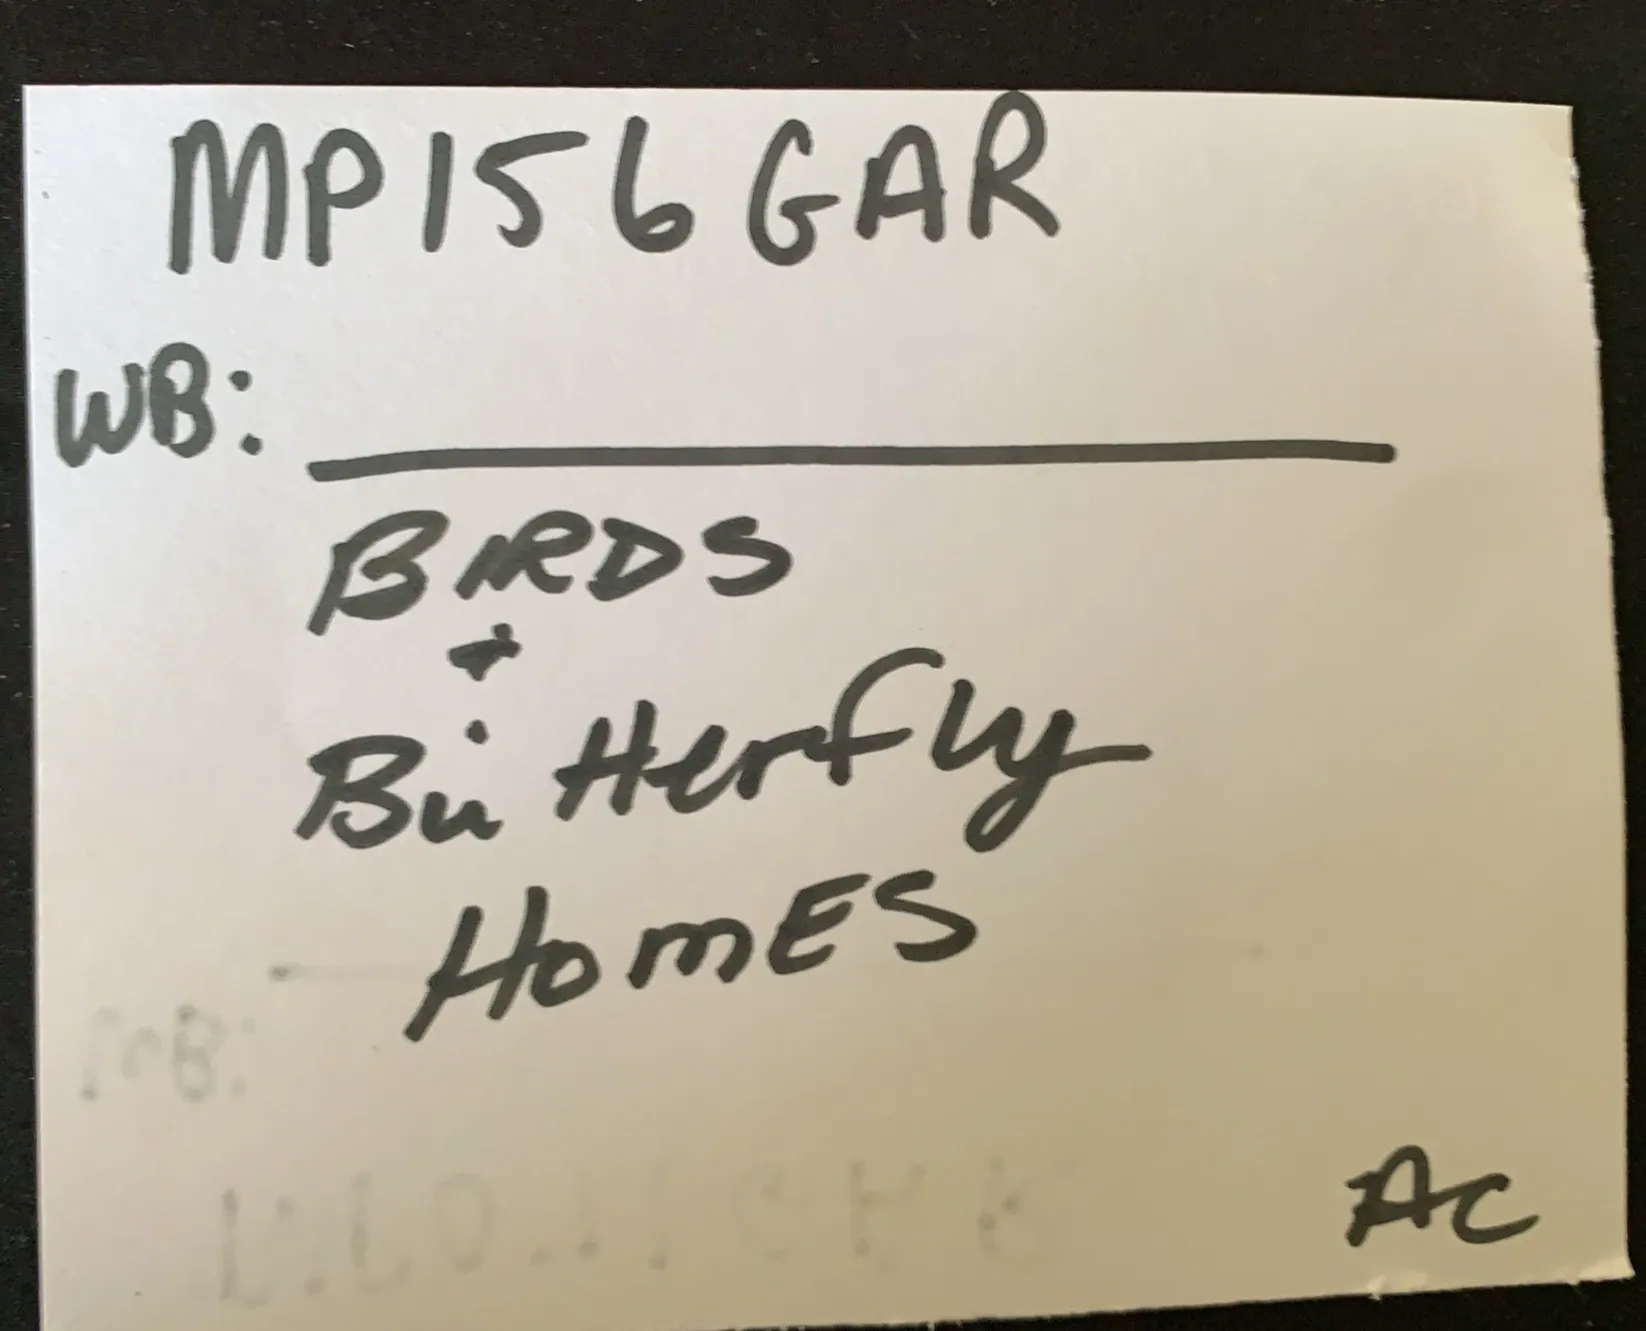 MP156GAR
WB:
BIRDS
+
Butterfly
HOMES
AC